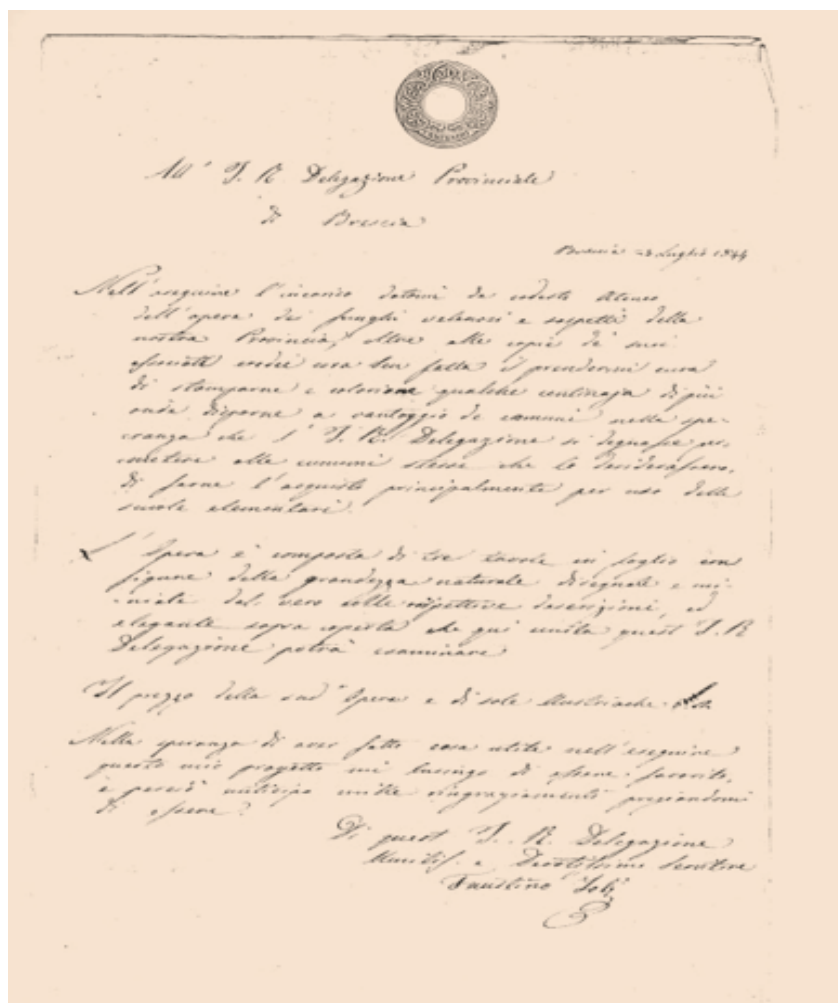 All' I. R. Delegazione Provinciale
di Brescia
Brescia Luglio 1844
Nell'eseguire l'incarico datomi da codesto Ateneo
dell'opera dei funghi velenosi e sospetti della
nostra Provincia, oltre alle copie de' suoi
associati credei cosa ben fatta il prendermi cura
di stamparne e colorirne qualche centinaja di più
onde disporne a vantaggio de comuni nella spe-
ranza che l' I. R. Delegazione si degnasse per-
mettere alle comuni stesse che lo desiderassero,
di farne l'acquisto principalmente per uso delle
scuole elementari.
L'Opera è composta di tre tavole in foglio con
figure della grandezza naturale disegnate e mi-
niate dal vero colle rispettive descrizioni, ed
elegante sopra coperta che qui unita quest' I. R.
Delegazione potrà esaminare
Il prezzo della sud.a Opera e di sole Austriache
Nella speranza di aver fatto cosa utile nell'eseguire
questo mio progetto mi lusingo di essere favorito,
e perciò anticipo mille ringraziamenti pregiandomi
di essere
Di quest' I. R. Delegazione
Umilis. e Devotissimo Servitore
Faustino